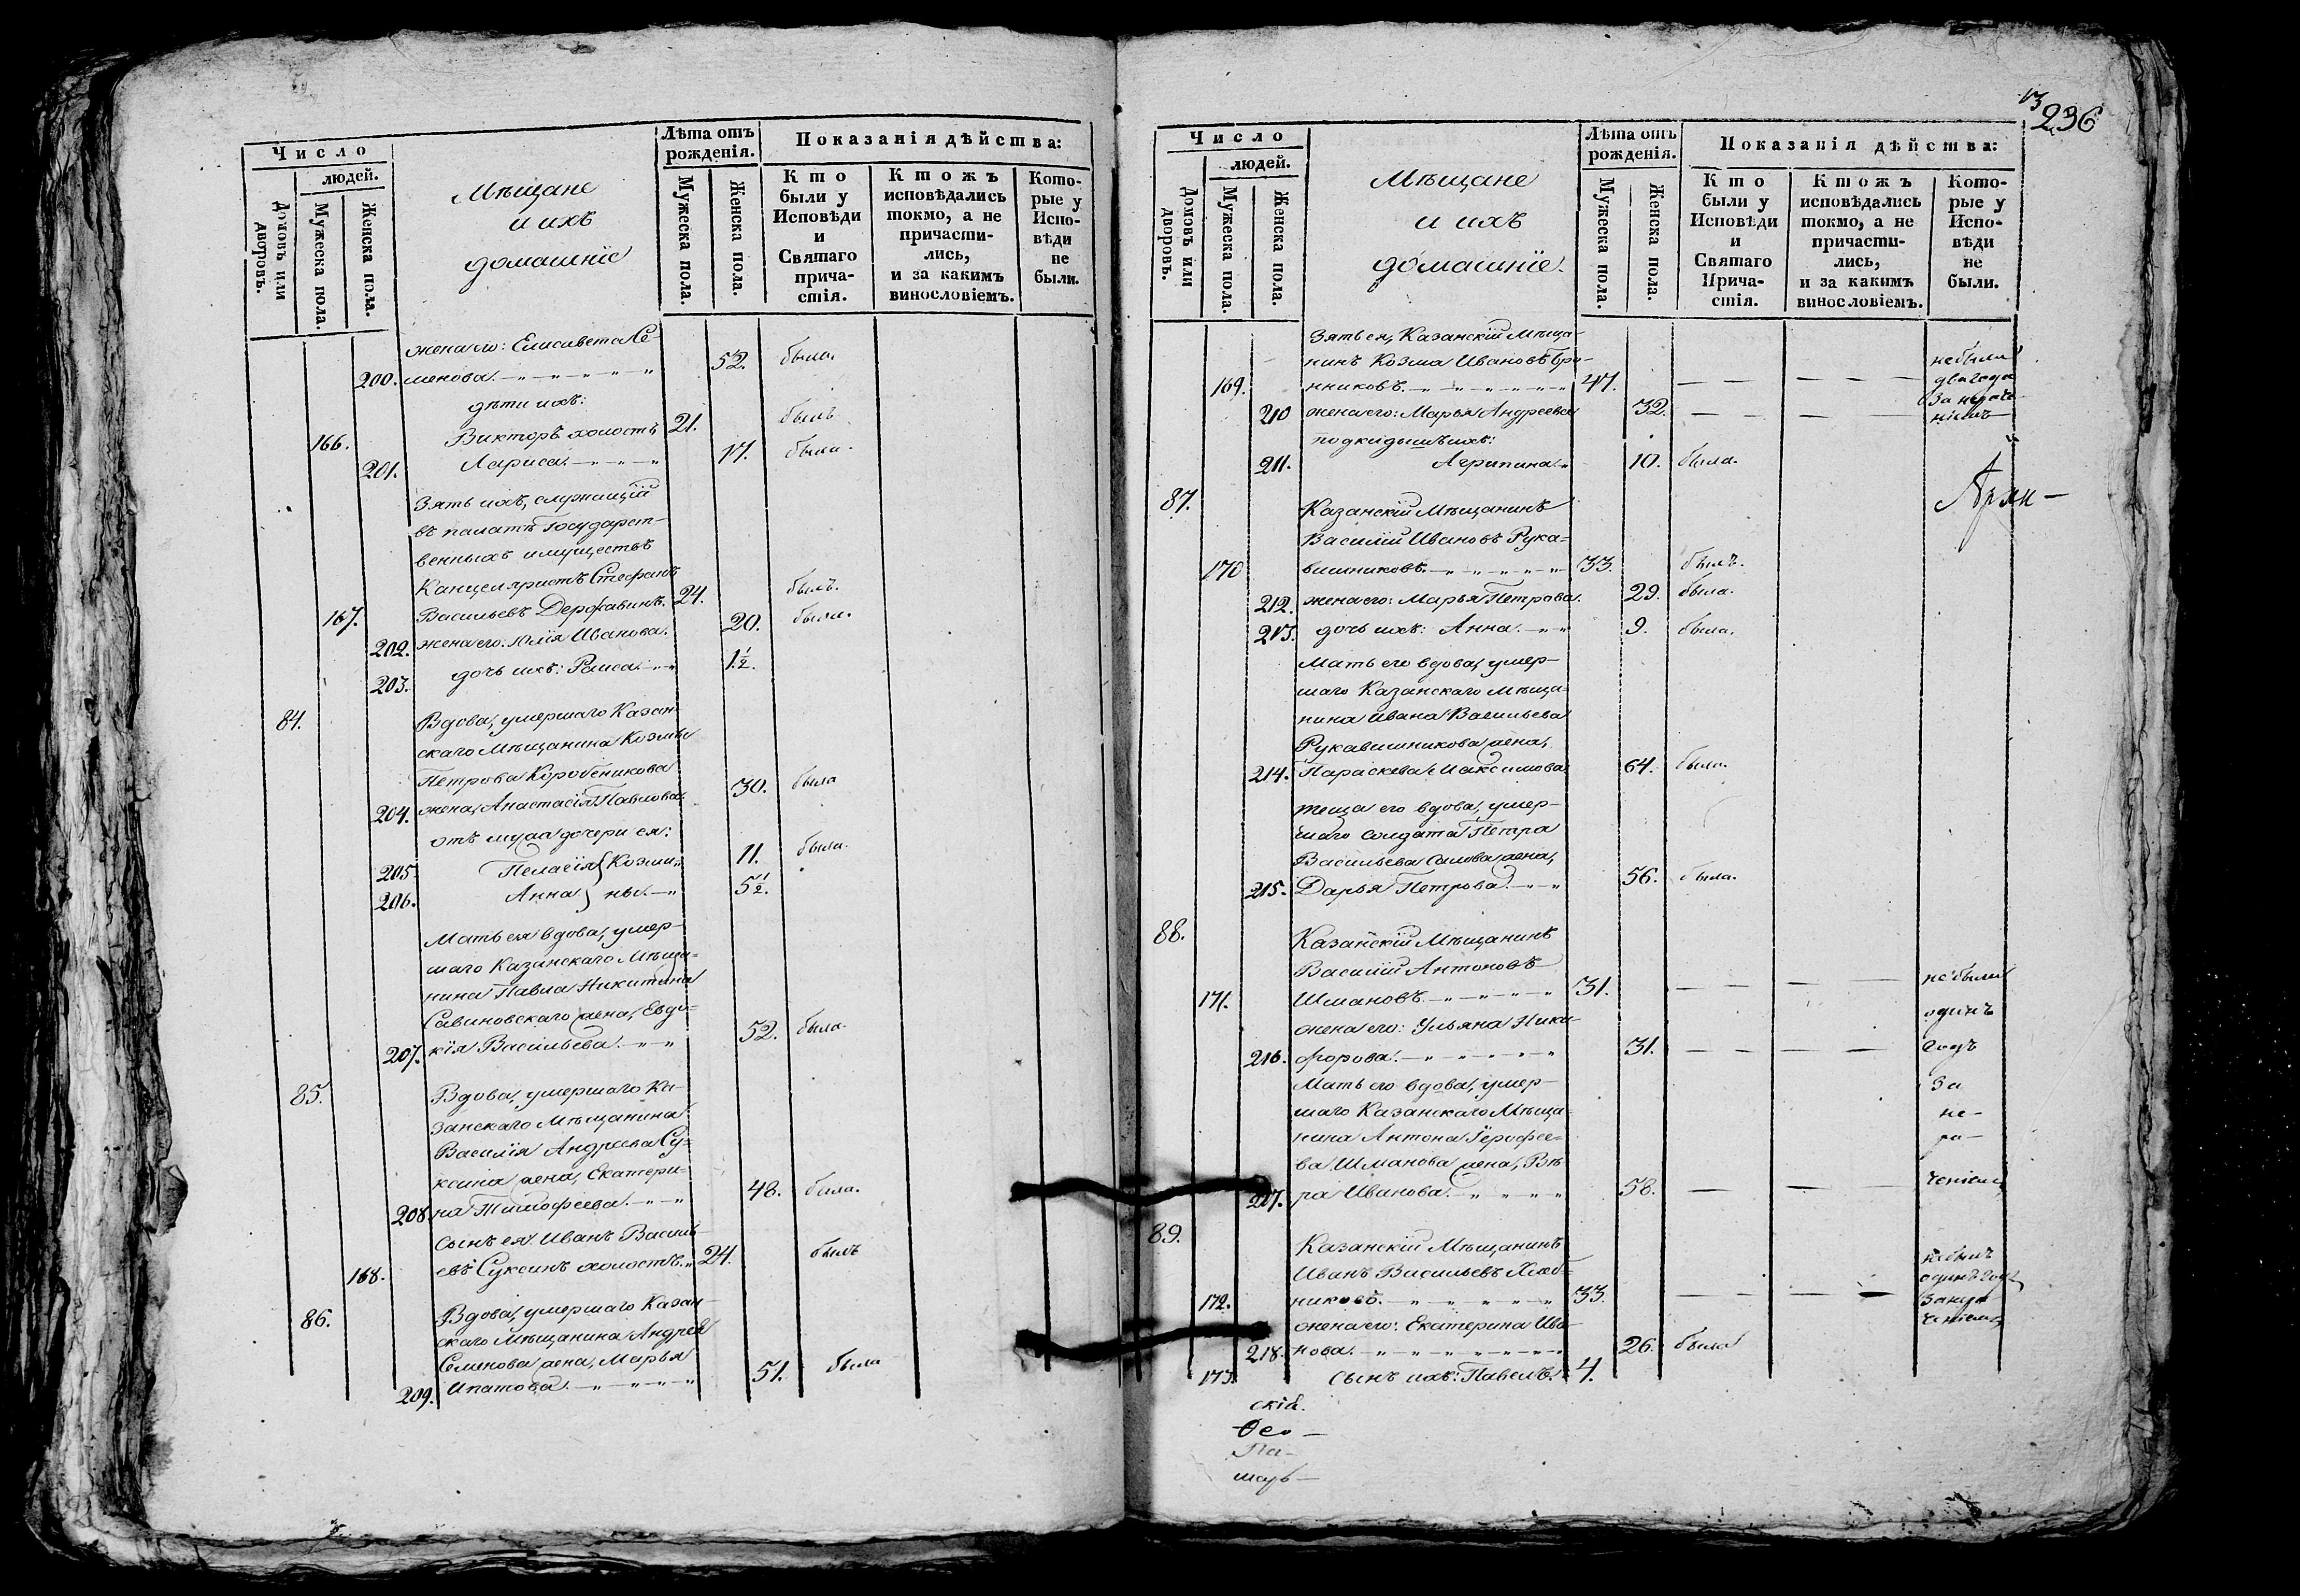 Число
людей.
Домовъ или дворовъ.
Мужеска пола.
Женска пола.
Мѣщане
и ихъ
домашніе
Лѣта отъ рожденія.
Мужеска пола.
Женска пола.
Показанія дѣйства:
Кто были у Исповѣди и Святаго причастія.
Ктожъ исповѣдались токмо, а не причастились, и за какимъ винословіемъ.
Которые у Исповѣди не были.
жена его: Елисавета Се-
200. менова. 52. была.
дѣти ихъ:
166. Викторъ холостъ 21. былъ
201. Лариса. 17. была.
Зять ихъ, служащій
въ палатѣ Государст-
венныхъ имуществъ
Канцеляристъ Стефанъ
167. Васильевъ Державинъ. 24. былъ.
202. жена его: Юлія Иванова. 20. была.
203. дочь ихъ: Раиса. 1½.
84. Вдова, умершаго Казан-
скаго Мѣщанина Козмы
Петрова Коробеникова
204. жена, Анастасія Павлова. 30. была
отъ мужа дочери ея:
205. Пелагія } Козми- 11. была.
206. Анна } ны. 5½.
Мать ея вдова, умер-
шаго Казанскаго Мѣща-
нина Павла Никитина
Савиновскаго жена, Евдо-
207. кія Васильева. 52. была.
85. Вдова, умершаго Ка-
занскаго Мѣщанина
Василія Андреева Су-
ксина жена, Екатери-
208. на Тимофеева. 48. была.
Сынъ ея: Иванъ Василь-
168. евъ Суксинъ холостъ. 24. былъ
86. Вдова, умершаго Казан-
скаго Мѣщанина Андрея
Семенова жена, Марья
209. Ипатова. 51. была
236
Число
людей.
Домовъ или дворовъ.
Мужеска пола.
Женска пола.
Мѣщане
и ихъ
домашніе.
Лѣта отъ рожденія.
Мужеска пола.
Женска пола.
Показанія дѣйства:
Кто были у Исповѣди и Святаго Причастія.
Ктожъ исповѣдались токмо, а не причастились, и за какимъ винословіемъ.
Которые у Исповѣди не были.
Зять ея, Казанскій Мѣща-
нинъ Козма Ивановъ Бро- не были
169. нниковъ. 47. два года
210 жена его: Марья Андреева 32. за нераче-
ніемъ
подкидышъ ихъ:
211. Агрипина. 10. была.
87. Казанскій Мѣщанинъ
Василій Ивановъ Рука-
170 вишниковъ. 33. былъ.
212. жена его: Марья Петрова. 29. была.
213. дочь ихъ: Анна. 9. была.
Мать его вдова, умер-
шаго Казанскаго Мѣща-
нина Ивана Васильева
Рукавишникова жена,
214. Параскева Максимова. 64. была.
теща его вдова, умер-
шаго солдата Петра
Васильева Салова жена,
215. Дарья Петрова. 56. была.
88. Казанскій Мѣщанинъ
Василій Антоновъ
171. Шмановъ. 31. не были
жена его: Ульяна Ники- одинъ
216. форова. 31. годъ
Мать его вдова, умер- за
шаго Казанскаго Мѣща- не-
нина Антона Ерофее- ра-
ва Шманова жена, Вѣ-
217. ра Иванова. 58. ченіемъ
89. Казанскій Мѣщанинъ
Иванъ Васильевъ Хлѣб- небылъ
одинъ годъ
172. никовъ. 33. занера-
жена его: Екатерина Ива- ченіемъ
218. нова. 26. была
173. сынъ ихъ: Павелъ. 4.
скій.
Ѳео-